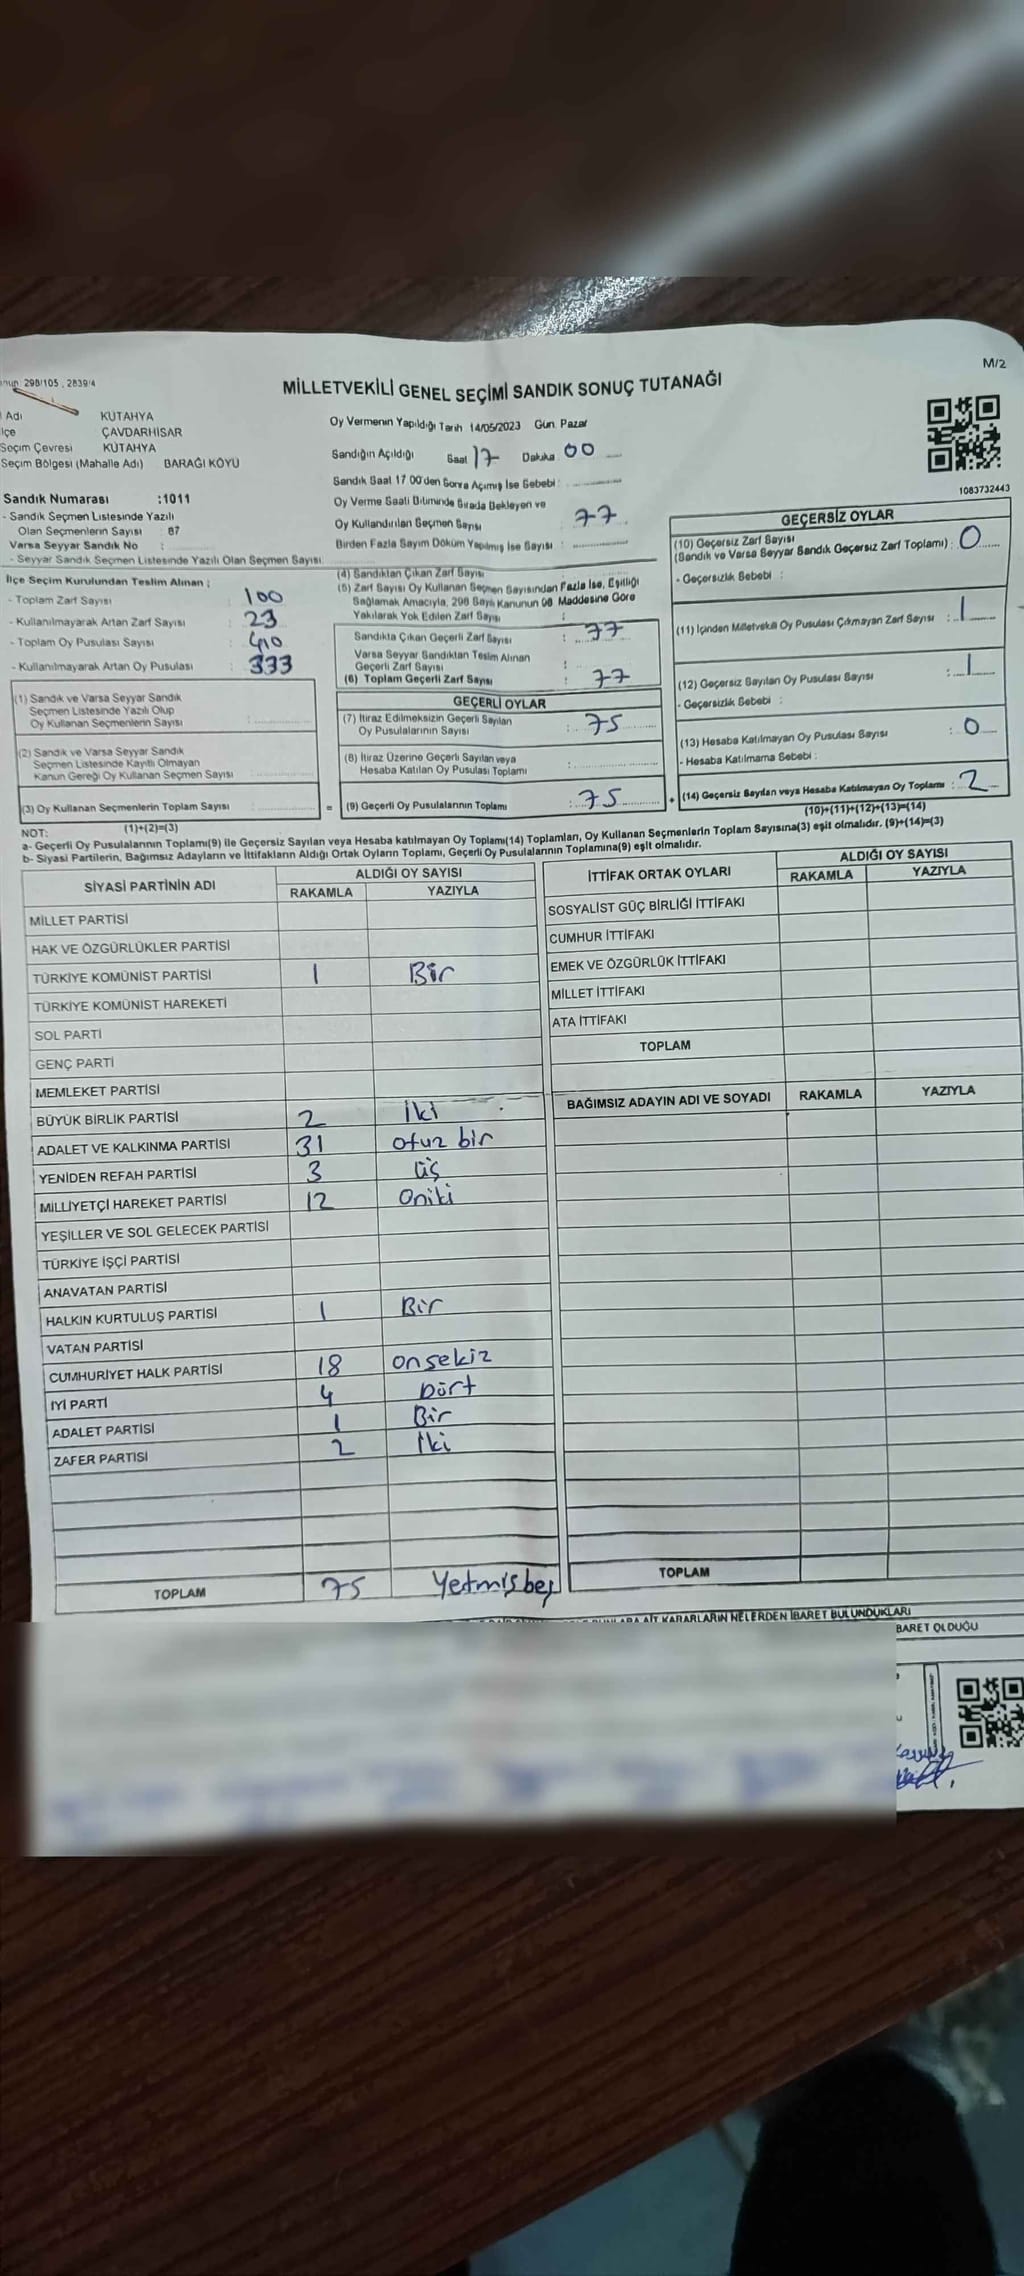 M/2
298/105 , 2839/4
MİLLETVEKİLİ GENEL SEÇİMİ SANDIK SONUÇ TUTANAĞI
Adı KÜTAHYA
ÇAVDARHİSAR
Seçim Çevresi KÜTAHYA
Seçim Bölgesi (Mahalle Adı) BARAĞI KÖYÜ
Sandık Numarası :1011
- Sandık Seçmen Listesinde Yazılı
Olan Seçmenlerin Sayısı : 87
Varsa Seyyar Sandık No :
- Seyyar Sandık Seçmen Listesinde Yazılı Olan Seçmen Sayısı
Oy Vermenin Yapıldığı Tarih 14/05/2023 Gün Pazar
Sandığın Açıldığı Saat 17 Dakika 00
Sandık Saat 17 00'den Sonra Açılmış İse Sebebi :
Oy Verme Saati Bitiminde Sırada Bekleyen ve
Oy Kullandırılan Seçmen Sayısı : 77
Birden Fazla Sayım Döküm Yapılmış İse Sayısı :
1083732443
İlçe Seçim Kurulundan Teslim Alınan ;
- Toplam Zarf Sayısı : 100
- Kullanılmayarak Artan Zarf Sayısı : 23
- Toplam Oy Pusulası Sayısı : 410
- Kullanılmayarak Artan Oy Pusulası : 333
(1) Sandık ve Varsa Seyyar Sandık
Seçmen Listesinde Yazılı Olup
Oy Kullanan Seçmenlerin Sayısı :
(2) Sandık ve Varsa Seyyar Sandık
Seçmen Listesinde Kayıtlı Olmayan
Kanun Gereği Oy Kullanan Seçmen Sayısı :
(3) Oy Kullanan Seçmenlerin Toplam Sayısı :
(1)+(2)=(3)
(4) Sandıktan Çıkan Zarf Sayısı :
(5) Zarf Sayısı Oy Kullanan Seçmen Sayısından Fazla İse, Eşitliği
Sağlamak Amacıyla, 298 Sayılı Kanunun 98 Maddesine Göre
Yakılarak Yok Edilen Zarf Sayısı :
Sandıkta Çıkan Geçerli Zarf Sayısı : 77
Varsa Seyyar Sandıktan Teslim Alınan
Geçerli Zarf Sayısı :
(6) Toplam Geçerli Zarf Sayısı : 77
GEÇERLİ OYLAR
(7) İtiraz Edilmeksizin Geçerli Sayılan
Oy Pusulalarının Sayısı : 75
(8) İtiraz Üzerine Geçerli Sayılan veya
Hesaba Katılan Oy Pusulası Toplamı :
= (9) Geçerli Oy Pusulalarının Toplamı : 75 +
GEÇERSİZ OYLAR
(10) Geçersiz Zarf Sayısı
(Sandık ve Varsa Seyyar Sandık Geçersiz Zarf Toplamı) : 0
- Geçersizlik Sebebi :
(11) İçinden Milletvekili Oy Pusulası Çıkmayan Zarf Sayısı : 1
(12) Geçersiz Sayılan Oy Pusulası Sayısı : 1
- Geçersizlik Sebebi :
(13) Hesaba Katılmayan Oy Pusulası Sayısı : 0
- Hesaba Katılmama Sebebi :
(14) Geçersiz Sayılan veya Hesaba Katılmayan Oy Toplamı : 2
(10)+(11)+(12)+(13)=(14)
NOT:
a- Geçerli Oy Pusulalarının Toplamı(9) ile Geçersiz Sayılan veya Hesaba katılmayan Oy Toplamı(14) Toplamları, Oy Kullanan Seçmenlerin Toplam Sayısına(3) eşit olmalıdır. (9)+(14)=(3)
b- Siyasi Partilerin, Bağımsız Adayların ve İttifakların Aldığı Ortak Oyların Toplamı, Geçerli Oy Pusulalarının Toplamına(9) eşit olmalıdır.
SİYASİ PARTİNİN ADI ALDIĞI OY SAYISI
RAKAMLA YAZIYLA
MİLLET PARTİSİ
HAK VE ÖZGÜRLÜKLER PARTİSİ
TÜRKİYE KOMÜNİST PARTİSİ 1 Bir
TÜRKİYE KOMÜNİST HAREKETİ
SOL PARTİ
GENÇ PARTİ
MEMLEKET PARTİSİ
BÜYÜK BİRLİK PARTİSİ 2 İki
ADALET VE KALKINMA PARTİSİ 31 otuz bir
YENİDEN REFAH PARTİSİ 3 üç
MİLLİYETÇİ HAREKET PARTİSİ 12 Oniki
YEŞİLLER VE SOL GELECEK PARTİSİ
TÜRKİYE İŞÇİ PARTİSİ
ANAVATAN PARTİSİ
HALKIN KURTULUŞ PARTİSİ 1 Bir
VATAN PARTİSİ
CUMHURİYET HALK PARTİSİ 18 onsekiz
İYİ PARTİ 4 Dört
ADALET PARTİSİ 1 Bir
ZAFER PARTİSİ 2 İki
TOPLAM 75 Yetmişbeş
İTTİFAK ORTAK OYLARI ALDIĞI OY SAYISI
RAKAMLA YAZIYLA
SOSYALİST GÜÇ BİRLİĞİ İTTİFAKI
CUMHUR İTTİFAKI
EMEK VE ÖZGÜRLÜK İTTİFAKI
MİLLET İTTİFAKI
ATA İTTİFAKI
TOPLAM
BAĞIMSIZ ADAYIN ADI VE SOYADI RAKAMLA YAZIYLA
TOPLAM
AİT KARARLARIN NELERDEN İBARET BULUNDUKLARI
BARET OLDUĞU